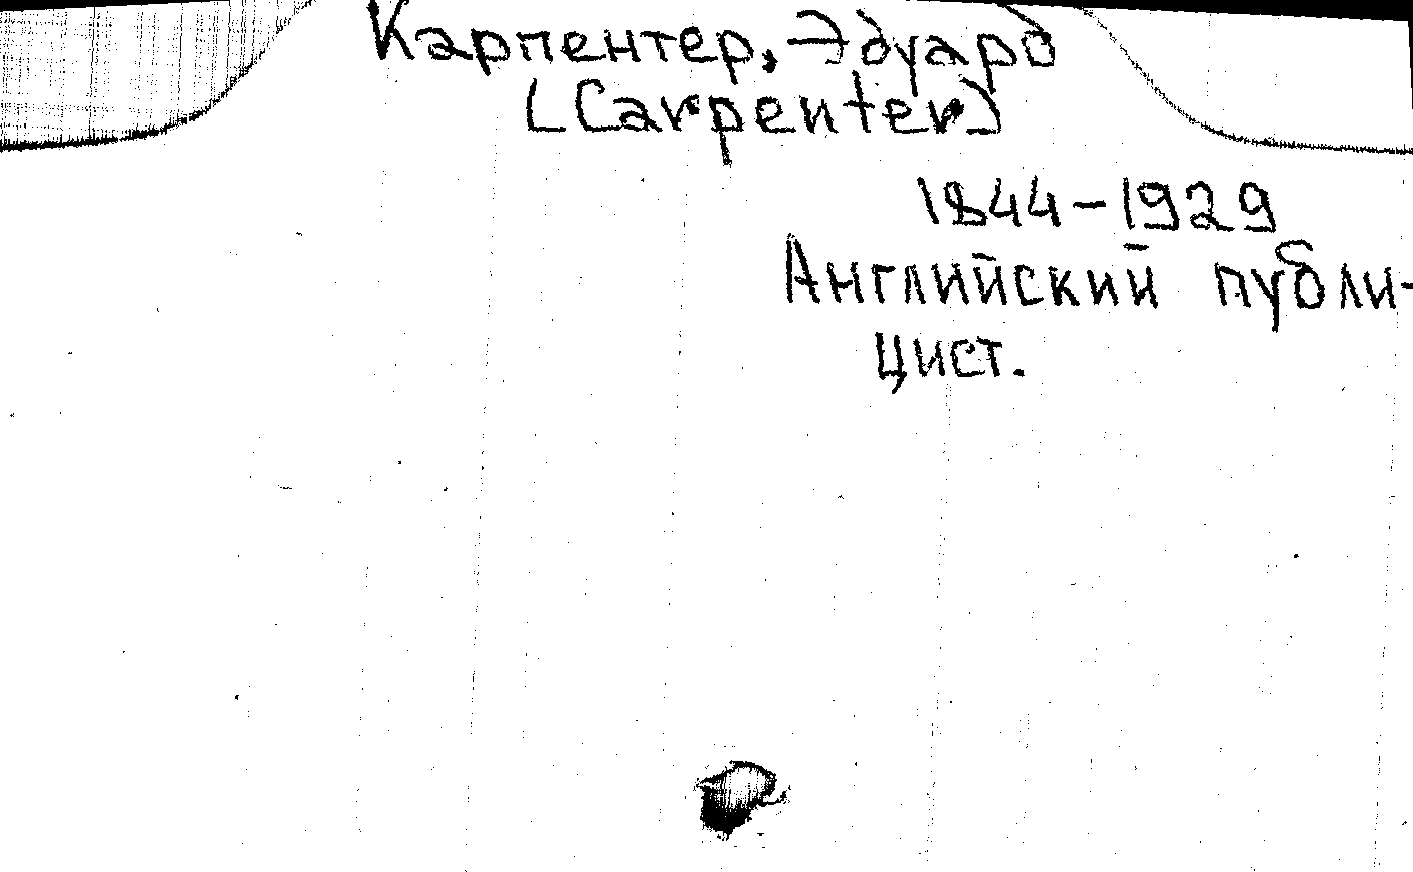 Карпентер, Эдуард
[Carpenter]
1844-1929
Английский публи-
цист.